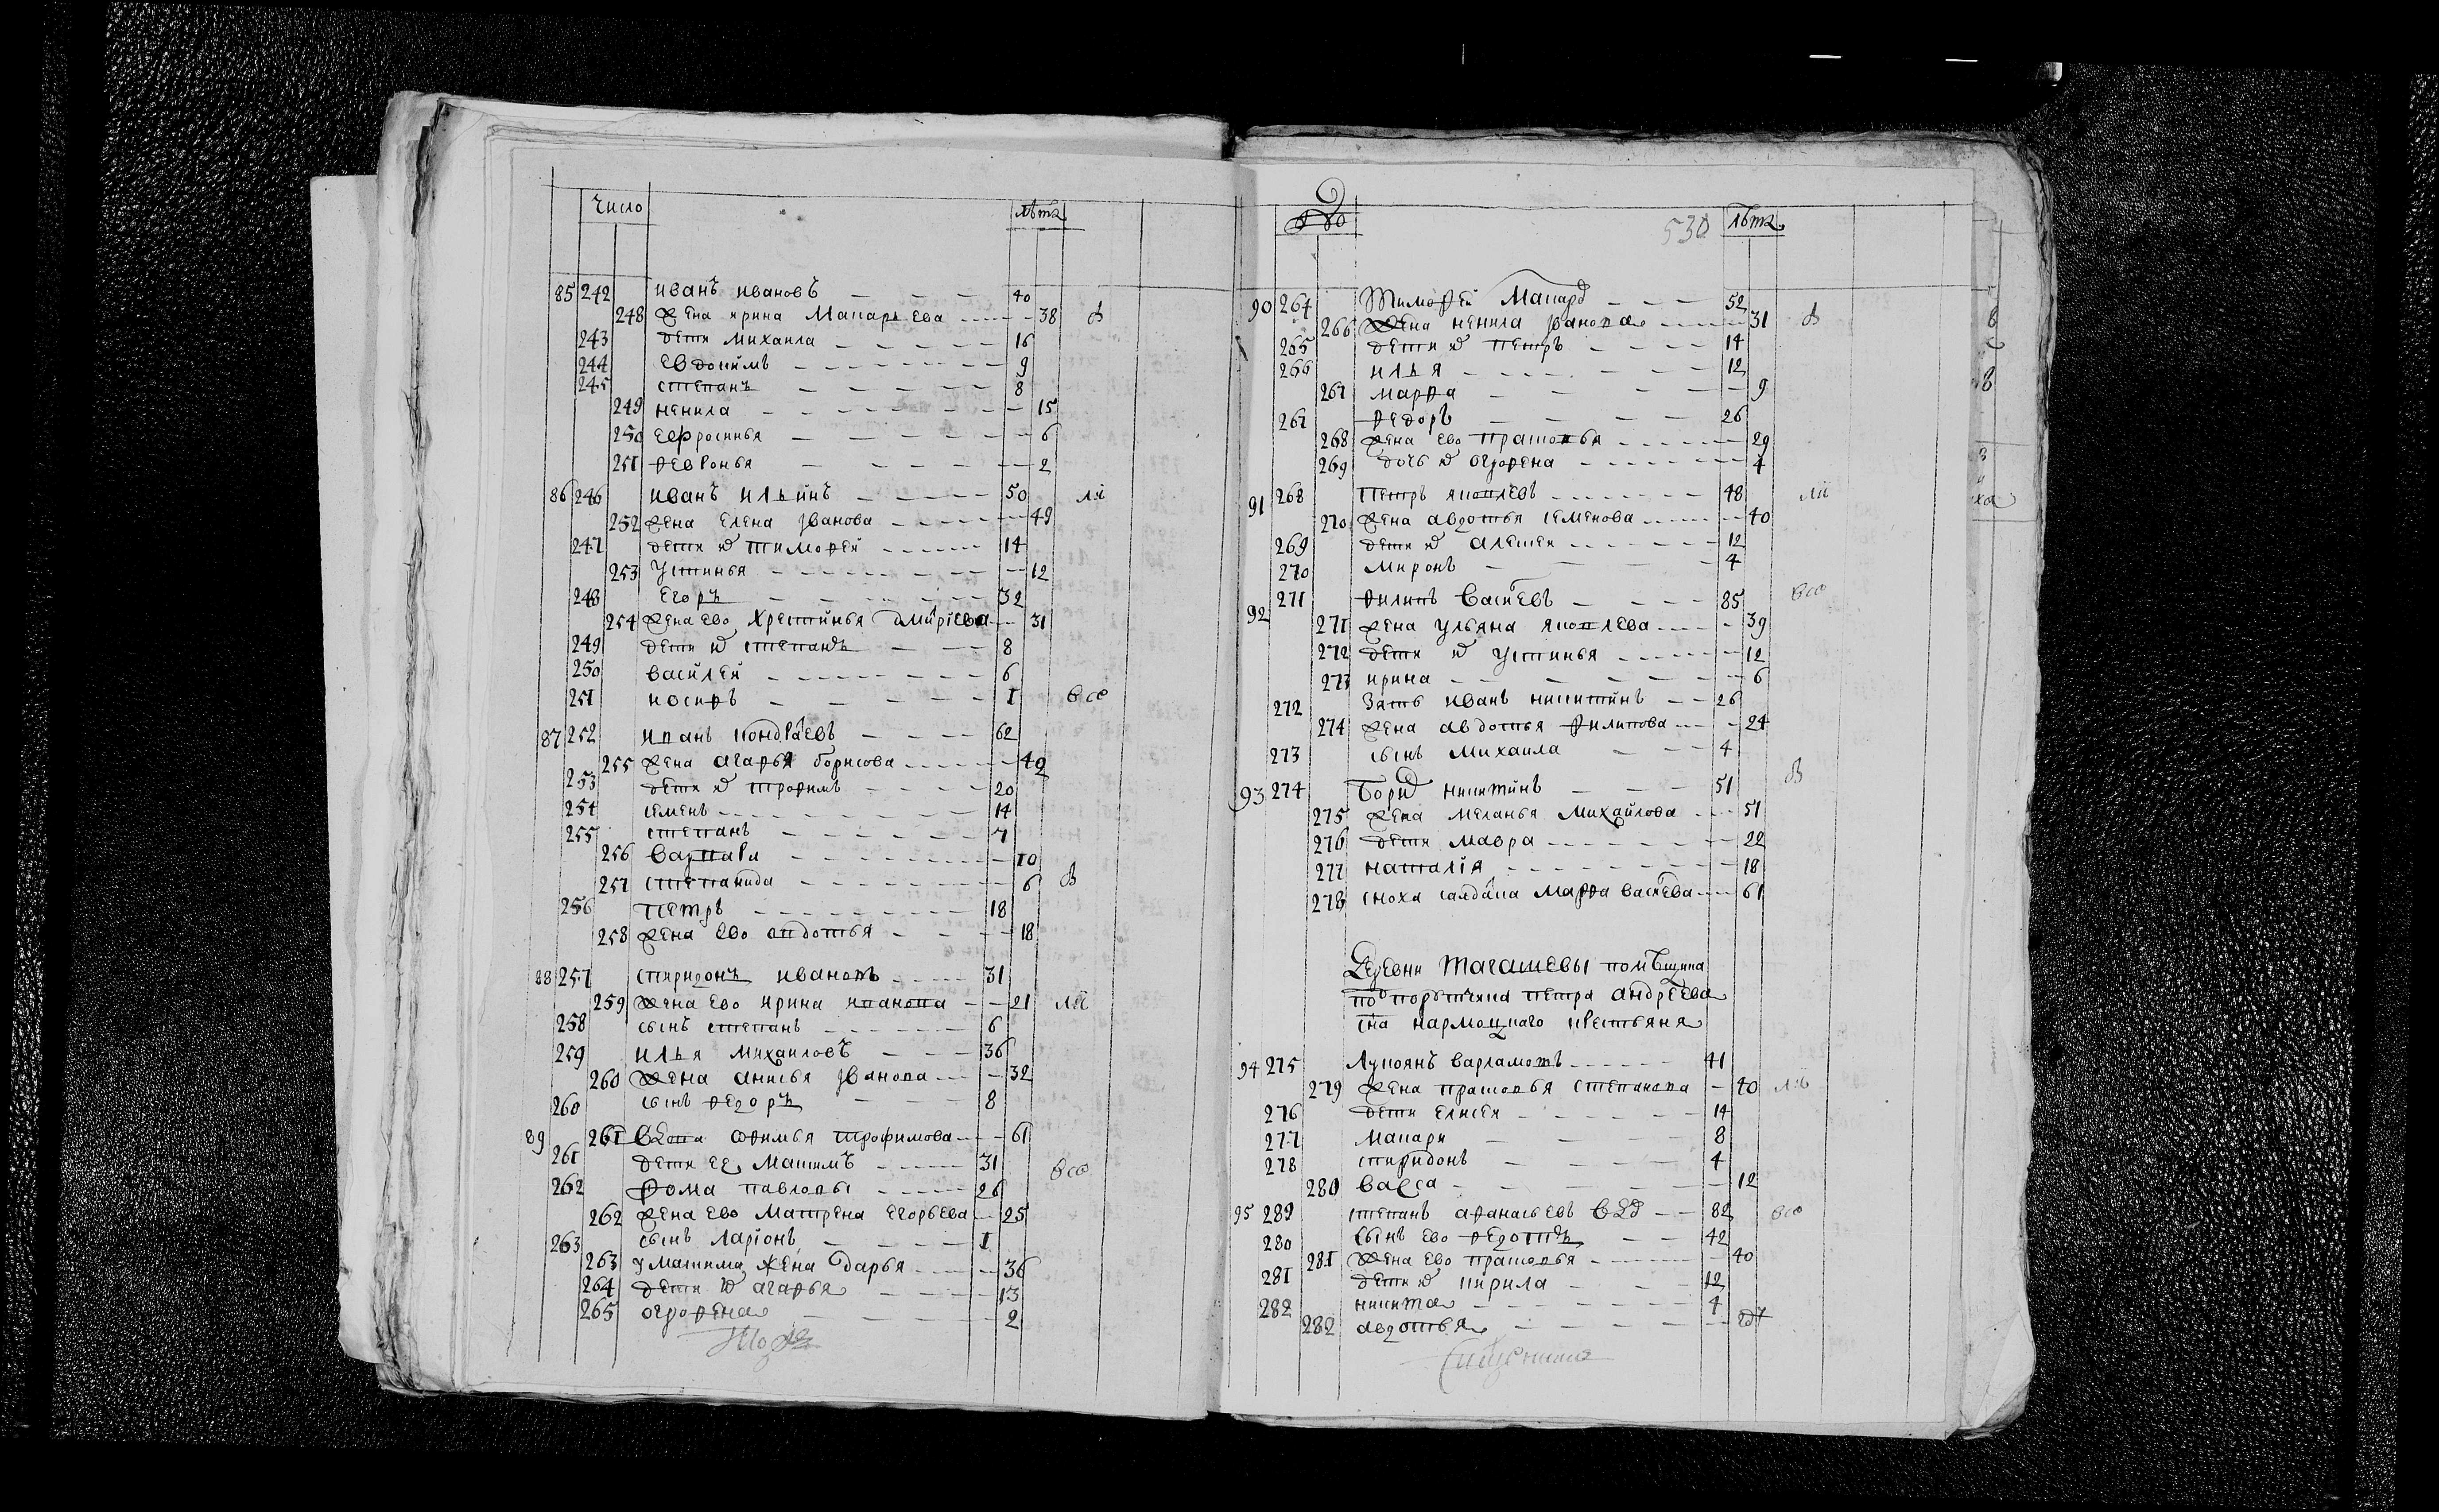 число лѣта
85 242 иванъ ивановъ 40
248 жена ирина Макарьева 38 в
243 дети михаила 16
244 Евдокимъ 9
245 степанъ 8
249 ненила 15
250 ефросинья 6
251 февронья 2
86 246 иванъ ильинъ 50
252 жена елена Иванова 49
247 дети тимофей 14
253 устинья 12
248 егоръ 32
254 жена ево хрестинья дмитриева 31
249 дети степанъ 8
250 василей 6
251 иосифъ 1
87 252 иванъ кондратевъ 62
255 жена агафья борисова 49
253 дети трофимъ 20
254 семенъ 14
255 степанъ 7
256 варвара 10
257 степанида 6 в
256 петръ 18
258 жена ево авдотья 18
88 257 спиридонъ ивановъ 31
259 жена ево ирина иванова 21
258 сынъ степанъ 6
259 илья михаиловъ 36
260 жена анисья Иванова 32
260 сынъ федоръ 8
89 261 вдова афимья трофимова 61
261 дети ее максимъ 31
262 фома павловы 26
262 жена ево матрена егорьева 25
263 сынъ ларионъ 1
263 у максима жена дарья 36
264 дети агафья 13
265 огрофена 2
530 лѣта
90 264 Тимофей Макаров 52
266 жена ненила Иванова 31 в
265 дети петръ 14
266 илья 12
267 марфа 9
267 федоръ 26
268 жена ево прасковья 29
269 дочь огрофена 4
91 268 петръ яковлевъ 48
270 жена авдотья семенова 40
269 дети алексей 12
270 миронъ 4
92 271 филипъ Васильевъ 85
271 жена ульяна яковлева 39
272 дети устинья 12
273 ирина 6
272 зять иванъ никитинъ 26
274 жена авдотья филипова 24
273 сынъ михаила 4
93 274 Борис никитинъ 51 в
275 жена меланья михайлова 51
276 дети мавра 22
277 наталія 18
278 сноха салдатка марфа васильева 61
Деревни тагашевы помѣщика
подпорутчика петра андреева
сна кармоцкаго крестьяня
94 275 Лукоянъ варламовъ 41
279 жена прасковья степанова 40
276 дети елисей 14
277 макари 8
278 спиридонъ 4
280 васса 12
95 289 степанъ афанасьевъ 82
280 сынъ ево федотъ 42
281 жена ево прасковья 40
281 дети кирила 12
282 никита 4
282 авдотья